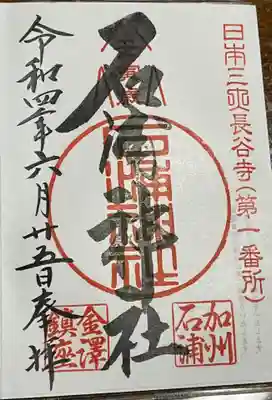 日本三 長谷寺(第一番所)
石浦神社
石浦神社
加州
石浦
令和四年六月廿五日奉拝
金澤
鎮座